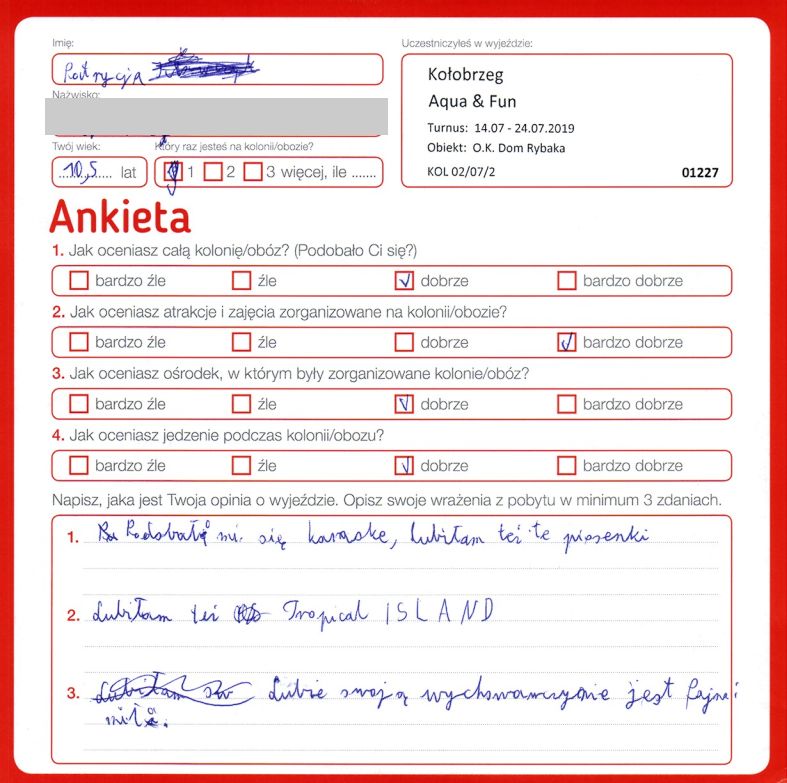 Imię:
Patrycja
Nazwisko:
Twój wiek:
10,5 lat
Który raz jesteś na kolonii/obozie?
1 2 3 więcej, ile .......
Uczestniczyłeś w wyjeździe:
Kołobrzeg
Aqua & Fun
Turnus: 14.07 - 24.07.2019
Obiekt: O.K. Dom Rybaka
KOL 02/07/2 01227
Ankieta
1. Jak oceniasz całą kolonię/obóz? (Podobało Ci się?)
bardzo źle źle dobrze bardzo dobrze
2. Jak oceniasz atrakcje i zajęcia zorganizowane na kolonii/obozie?
bardzo źle źle dobrze bardzo dobrze
3. Jak oceniasz ośrodek, w którym były zorganizowane kolonie/obóz?
bardzo źle źle dobrze bardzo dobrze
4. Jak oceniasz jedzenie podczas kolonii/obozu?
bardzo źle źle dobrze bardzo dobrze
Napisz, jaka jest Twoja opinia o wyjeździe. Opisz swoje wrażenia z pobytu w minimum 3 zdaniach.
1. Podobało mi się karaoke, lubiłam też te piosenki
2. Lubiłam też Tropical ISLAND
3. Lubie swoją jest fajna i
miła.